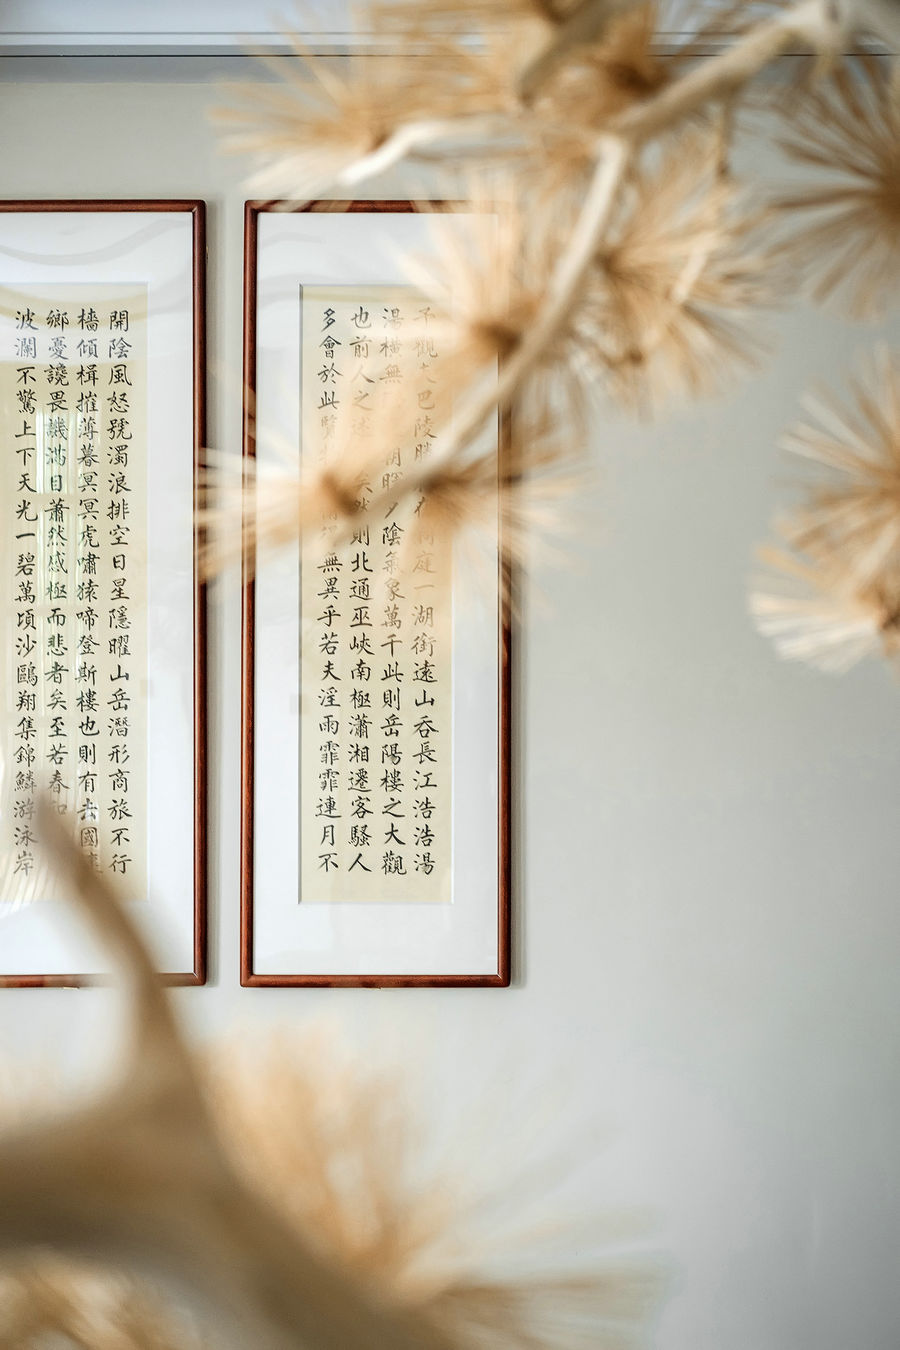 予觀巴陵勝庭一湖銜遠山吞長江浩浩湯
湯橫無朝暉夕陰氣象萬千此則岳陽樓之大觀
也前人之述矣然則北通巫峽南極瀟湘遷客騷人
多會於此覽無異乎若夫淫雨霏霏連月不
開陰風怒號濁浪排空日星隱曜山岳潛形商旅不行
檣傾楫摧薄暮冥冥虎嘯猿啼登斯樓也則有去國
鄉憂讒畏譏滿目蕭然感極而悲者矣至若春和
波瀾不驚上下天光一碧萬頃沙鷗翔集錦鱗游泳岸